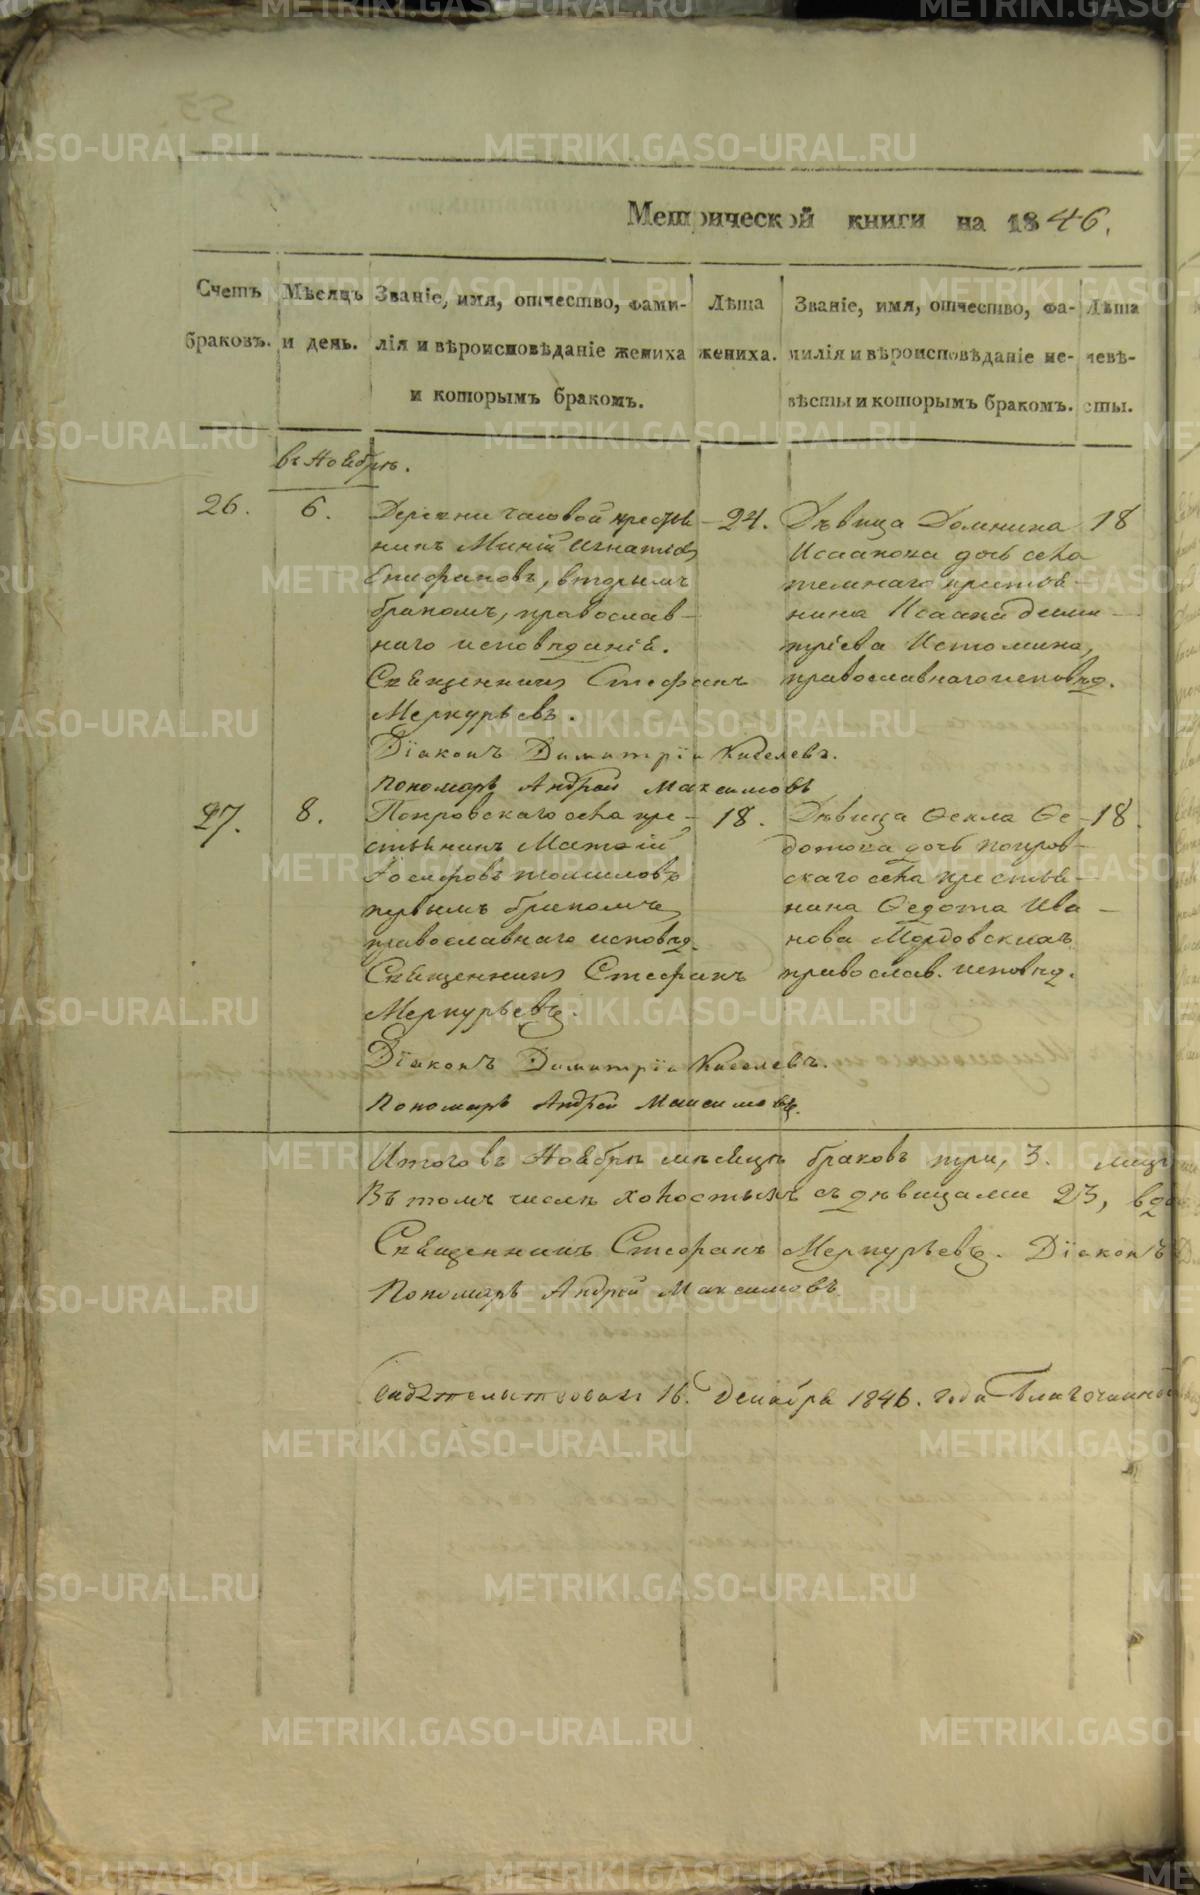 Метрической книги на 1846.
Счетъ браковъ.
Мѣсяцъ и день.
Званіе, имя, отчество, фами-
лія и вѣроисповѣданіе жениха
и которымъ бракомъ.
Лѣта
жениха.
Званіе, имя, отчество, фа-
милія и вѣроисповѣданіе не-
вѣсты и которымъ бракомъ.
Лѣта
невѣ-
сты.
въ Ноябрѣ.
26.
6.
Деревни Часовой крестья
нинъ Миній Игнатіев
Епифановъ, вторымъ
бракомъ, православ-
наго исповѣданія.
Священникъ Стефанъ
Меркурьевъ.
Діаконъ Димитрій Киселевъ.
Пономарь Андрей Максимовъ
24.
Дѣвица Домнина
Исаакова дочь села
темнаго крестья-
нина Исаака Дими-
тріева Истомина,
православнаго исповѣд.
18
27.
8.
Покровскаго села кре-
стьянинъ Матѳій
Іосифовъ Томиловъ
первымъ бракомъ
православнаго исповѣд.
Священникъ Стефанъ
Меркурьевъ.
Діаконъ Димитрій Киселевъ.
Пономарь Андрей Максимовъ.
18.
Дѣвица Ѳекла Ѳе-
дотова дочь покров-
скаго села крестья-
нина Ѳедота Ива-
нова Мордовскихъ
православ. исповѣд.
18.
Итого въ Ноябрѣ мѣсяцѣ браковъ три, 3. лицъ
Въ томъ числѣ холостыхъ съ дѣвицами 23, вдо
Священникъ Стефанъ Меркурьевъ. Діаконъ
Пономарь Андрей Максимовъ.
Свидѣтельствовалъ 16. Декабря 1846. года Благочинной
METRIKI.GASO-URAL.RU